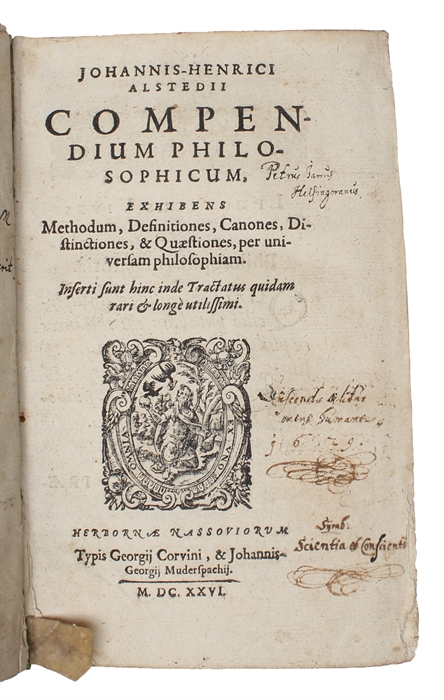 JOHANNIS-HENRICI
ALSTEDII
COMPEN-
DIUM PHILO-
SOPHICUM,
Petrus Janus
Helsingoranus.
EXHIBENS
Methodum, Definitiones, Canones, Di-
stinctiones, & Quæstiones, per uni-
versam philosophiam.
Inserti sunt hinc inde Tractatus quidam
rari & longè utilissimi.
humanæ
1629.
HERBORNÆ NASSOVIORUM
Symb:
Typis Georgij Corvini, & Johannis-
Scientia et Conscienti
Georgij Muderspachij.
M. DC. XXVI.